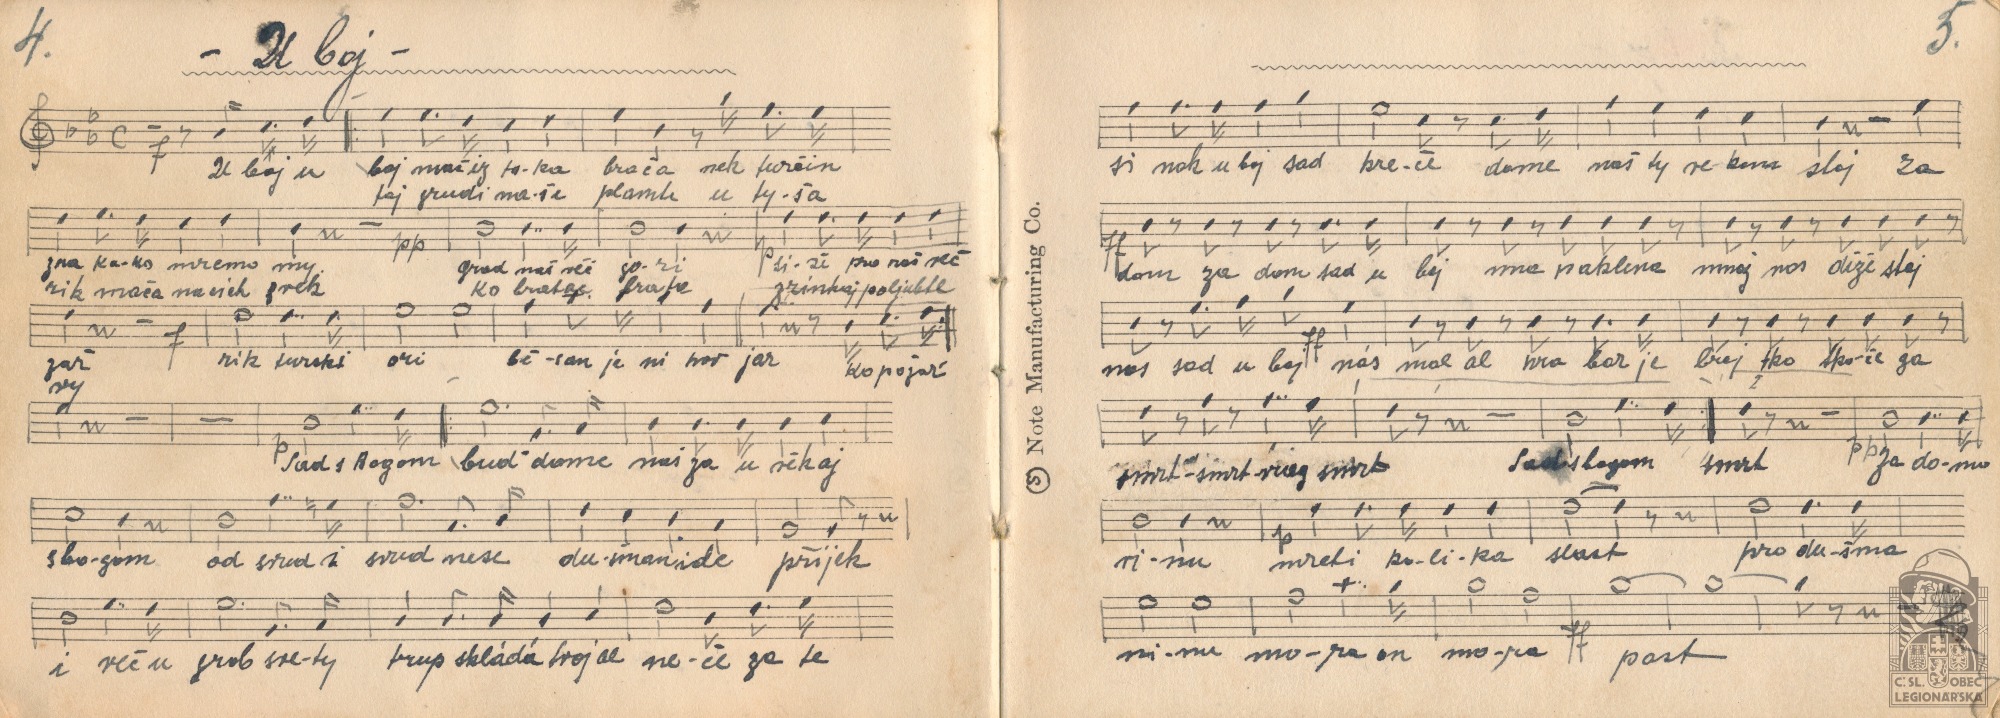 4.
- U boj -
f
U boj u boj mač iz to-ka brača nek turčin
taj grudi na-še plamte u ty-ša
pp
zna ka-ko mremo my. grad naš več go-ri p si-že pro naš več
rik mača nasich zvek ko bratac brata zrinkaj poljubte
f
žar rik turski ori bě-san je ni hov jar ko požar
ry
p Sad s Bogom bud' dome naš za u věkaj
sbo-gom od svud i svud nese du-šman ide přijek
i več u grob sve-ty trup skládá tvoj al ne-če za te
Note Manufacturing Co.
5.
si nak u boj sad kre-če dome naš ty ve-kom stoj za
ff
dom za dom sad u boj ma paklena množ nas diže stoj
nas sad u boj ff nás mal al hra bar je broj tko sko-če ga
smrt-smrt vrag smrt Sad sbogom smrt ppp za do-mo
vi-nu p mreti ko-li-ka slast pro du-šma
ni-nu mo-ra on mo-ra ff past
Č.SL. OBEC
LEGIONÁŘSKÁ